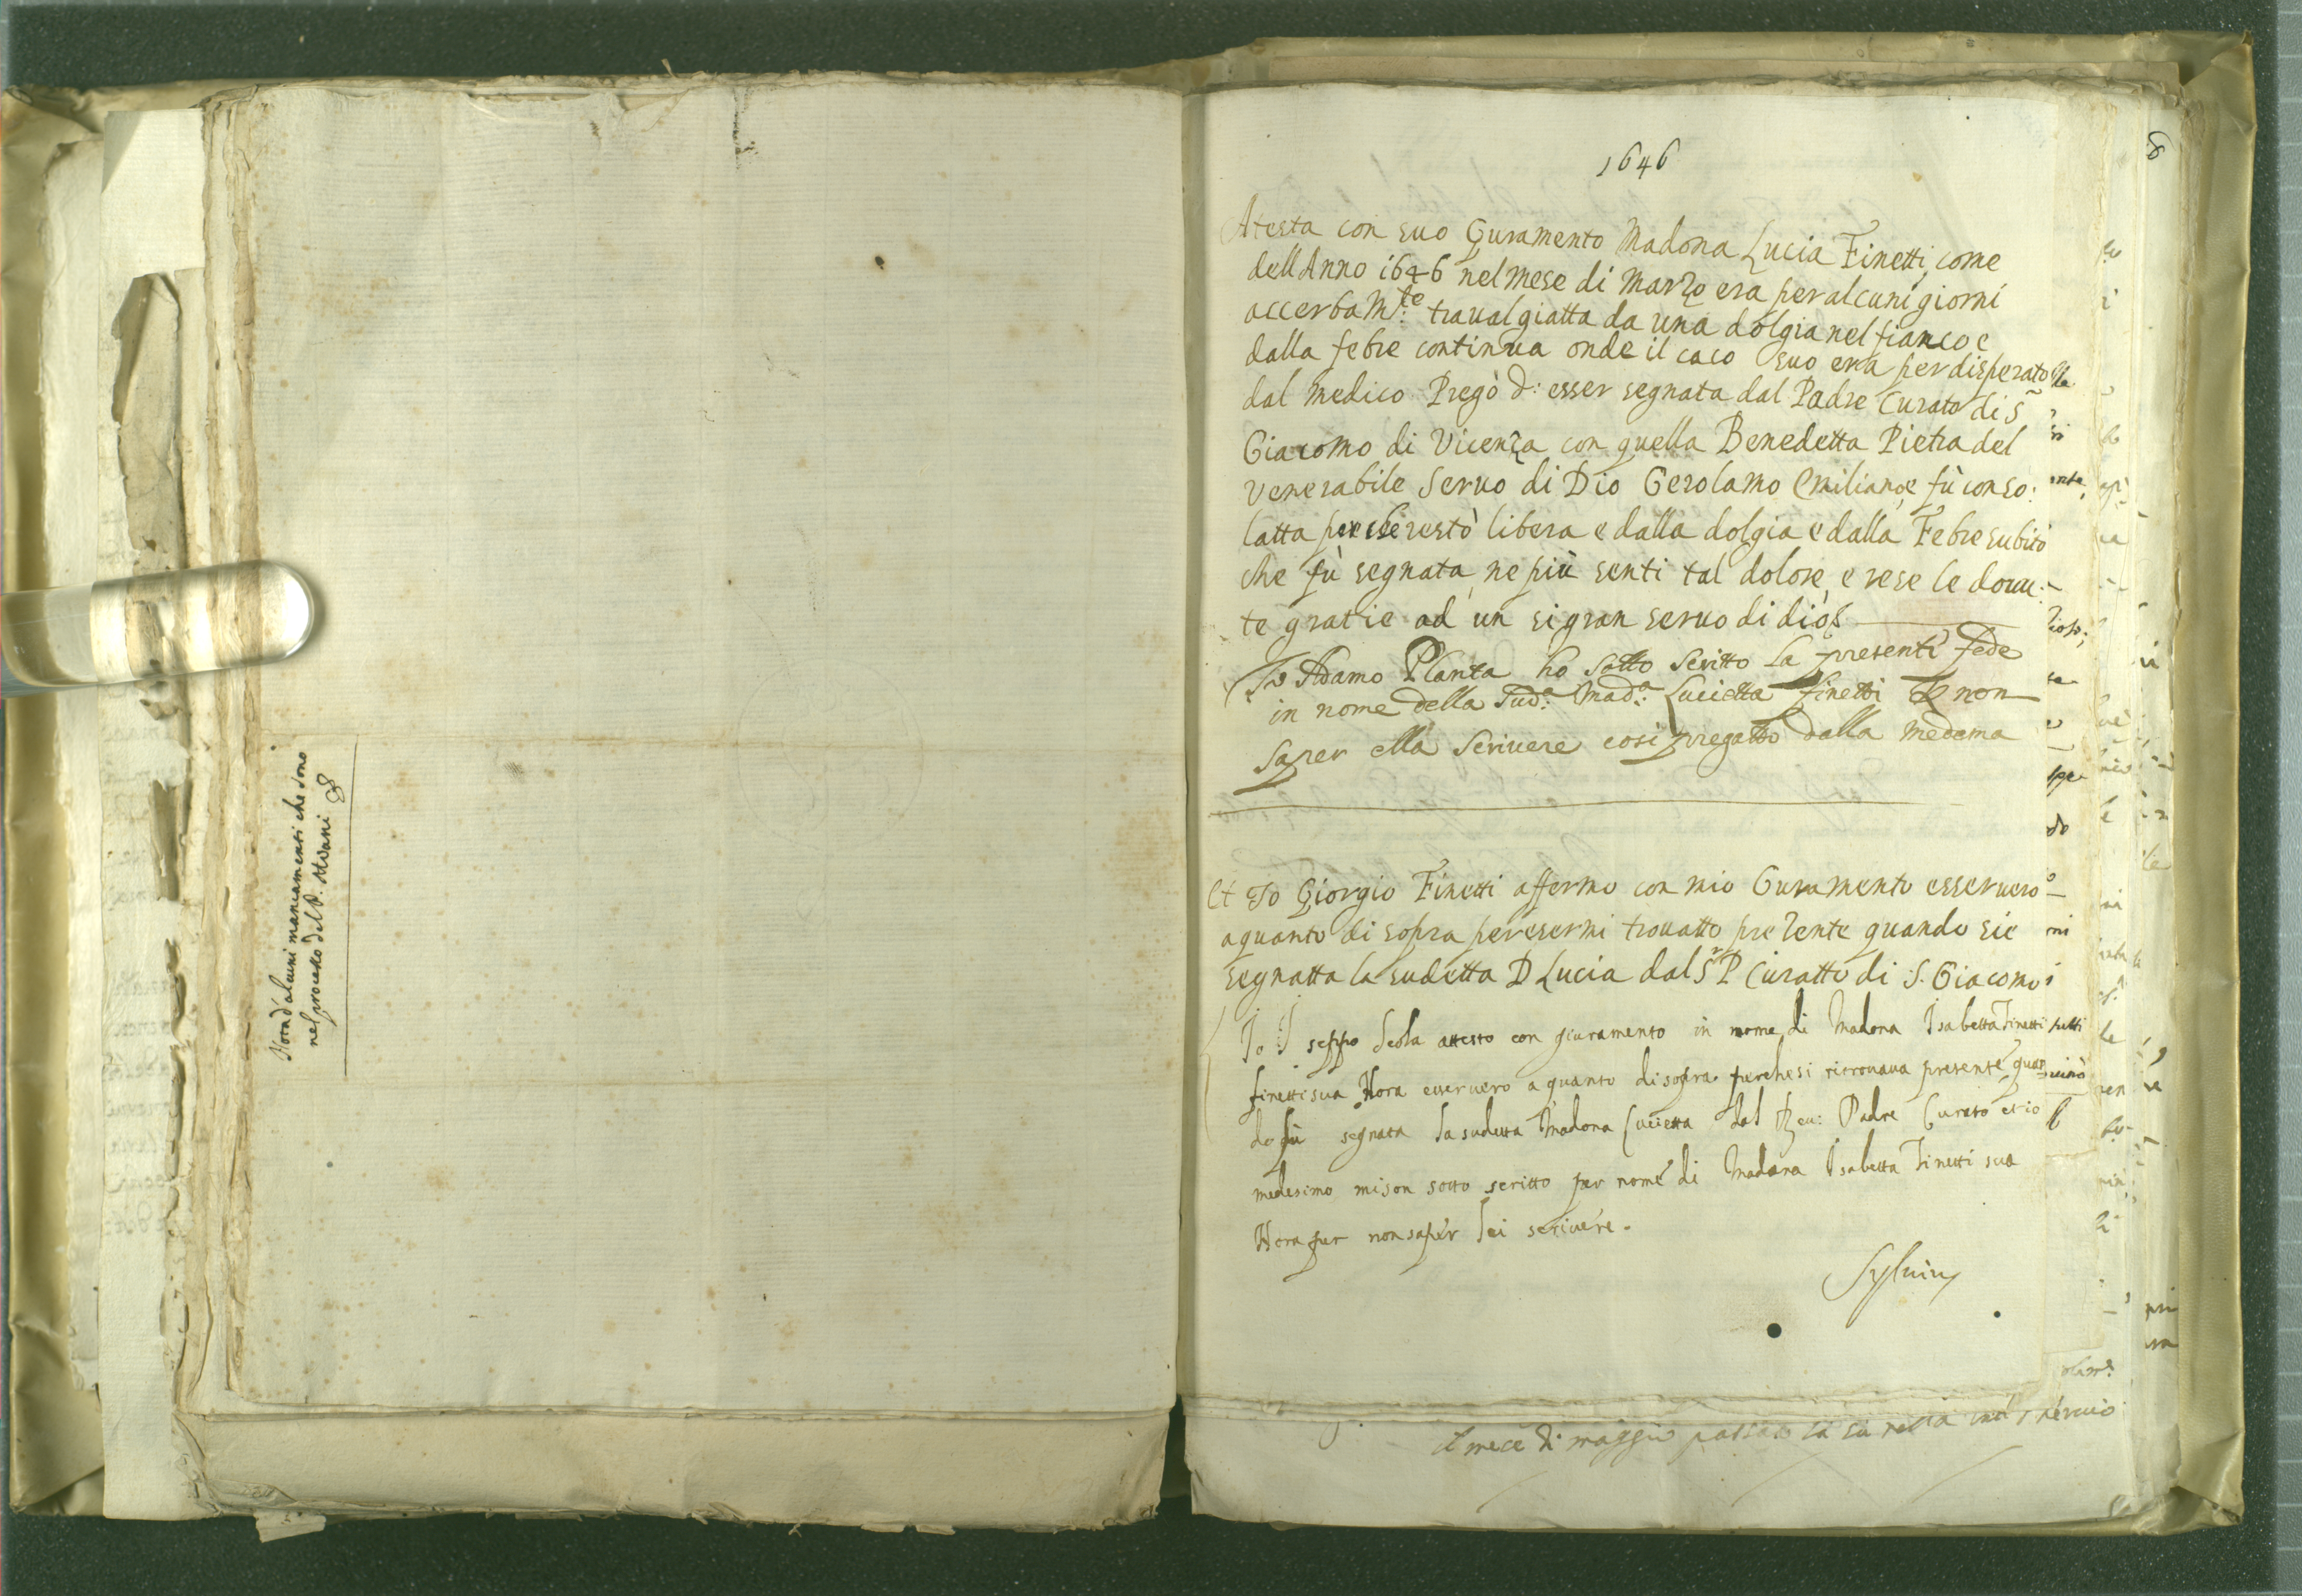 Nota d'alcuni mancamenti che sono
nel processo del P.
1646
8
Atesta con suo Guramento Madona Lucia Finetti, come
dell Anno 1646 nel mese di Marzo era per alcuni giorni
accerbam.te traualgiatta da una dolgia nel fianco e
dalla febre continua onde il caco suo era per disperato
dal Medico Pregò d: esser segnata dal Padre Curato di S
Giacomo di Vicenza con quella Benedetta Pietra del
Venerabile Seruo di Dio Gerolamo Emiliano, e fù conso:
latta perche restò libera e dalla dolgia e dalla Febre subito
che fù segnata, ne più senti tal dolore, e rese le doūu:
te gratie ad un si gran seruo di dio
Io Adamo Planta ho sotto scritto la presenti fede
in nome della Sud.a Mad.a Lucietta finetti non
saper ella scriuere cosi pregatto dalla medema
Et Io Giorgio Finetti affermo con mio Guramento esser uero
a quanto di sopra per esermi trouatto prezente quando sie
segnatta la sudetta D Lucia dal S.r P Curatto di S. Giacomo
Io seppo Scola attesto con giuramento in nome di Madona Isabetta Finetti
finetti sua Nora esser uero a quanto di sopra perche si ritrouaua presente quan
do fù segnata la sudetta Madona Lucietta dal Reu: Padre Curato et io
medesimo mi son sotto scritto per nome di Madona Isabetta Finetti sua
Nora per non saper lei scriuere.
il mece di maggio passato